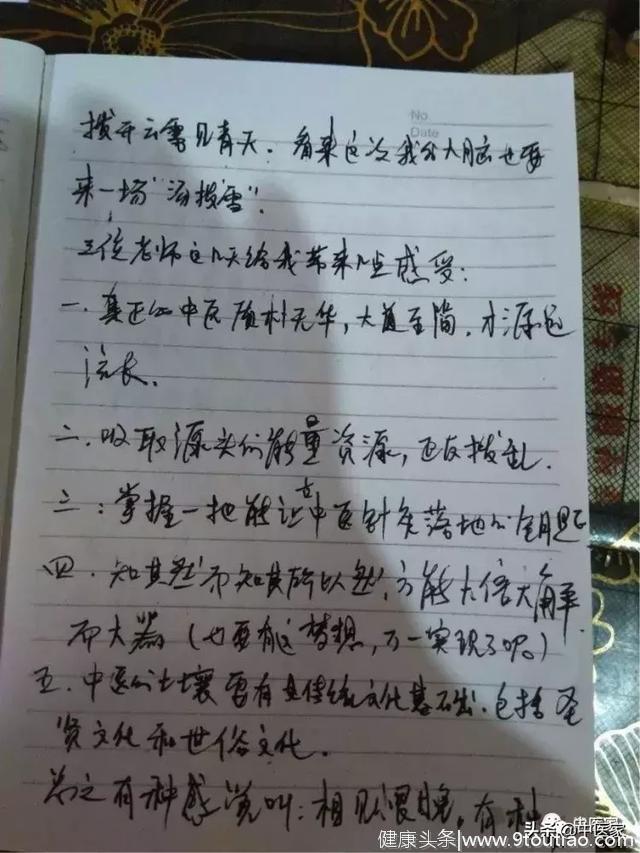 No
Date
拨开云雾见青天．看来这次我的大脑也要
来一场"汤拨雪"．
三位老师这几天给我带来几点感受：
一．真正的中医质朴无华，大道至简．才源远
流长．
二．吸取源头的能量资源，正反拨乱．
三：掌握一把能让古中医针灸落地的钥匙
四．知其然而知其所以然，方能大悟大解．
而大器（也要有这梦想，万一实现了呢。）
五．中医的土壤需有具传统文化基石出．包括圣
贤文化和世俗文化．
总之有种感觉叫：相见恨晚，有种
头条@中医家
健康头条|www.9toutiao.com/